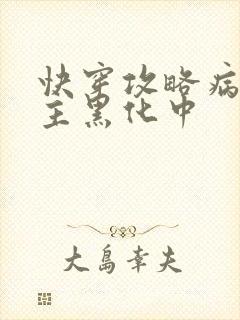 快穿攻略病
主黑化中
大島幸夫